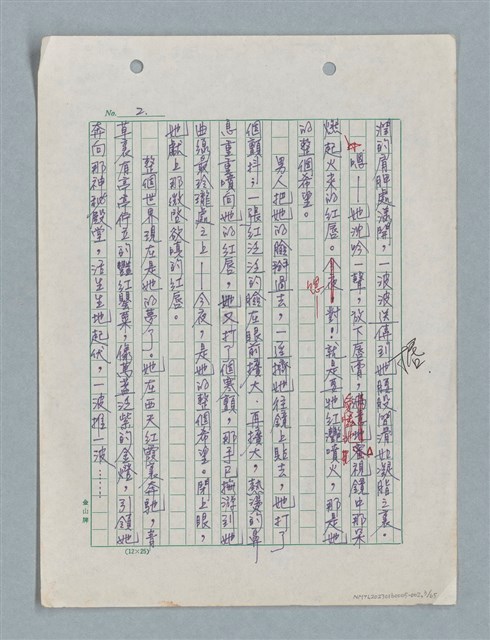 No. 2.
潤的肩胛處漾開，一波波送傳到她腰股間滑如凝脂之裏。
嗯——她沈吟一聲，放下唇膏，審視鏡中那朵
燃起火來的紅唇。今夜，對！就是要她紅灩噴火，那是她
的整個希望。
男人把她的臉掰過去，一逕擠她往鏡上貼去，她打了
個顫抖；一張紅泛泛的臉在眼前擴大、再擴大，熱燙的鼻
息重重噴向她的紅唇，她又打了個寒顫，那手已撫游到她
曲線最玲瓏處之上——今夜，是她的整個希望。閉上眼，
她獻上那激盪欲滴的紅唇。
整個世界現在是她的夢了。她在西天紅霞裏奔馳，青
草裏有亭亭伫立的豔紅罌粟，像萬盞泛紫的金燈，引領她
奔向那神祕殿堂，活生生地起伏，一波推一波……
金山牌
(12×25)